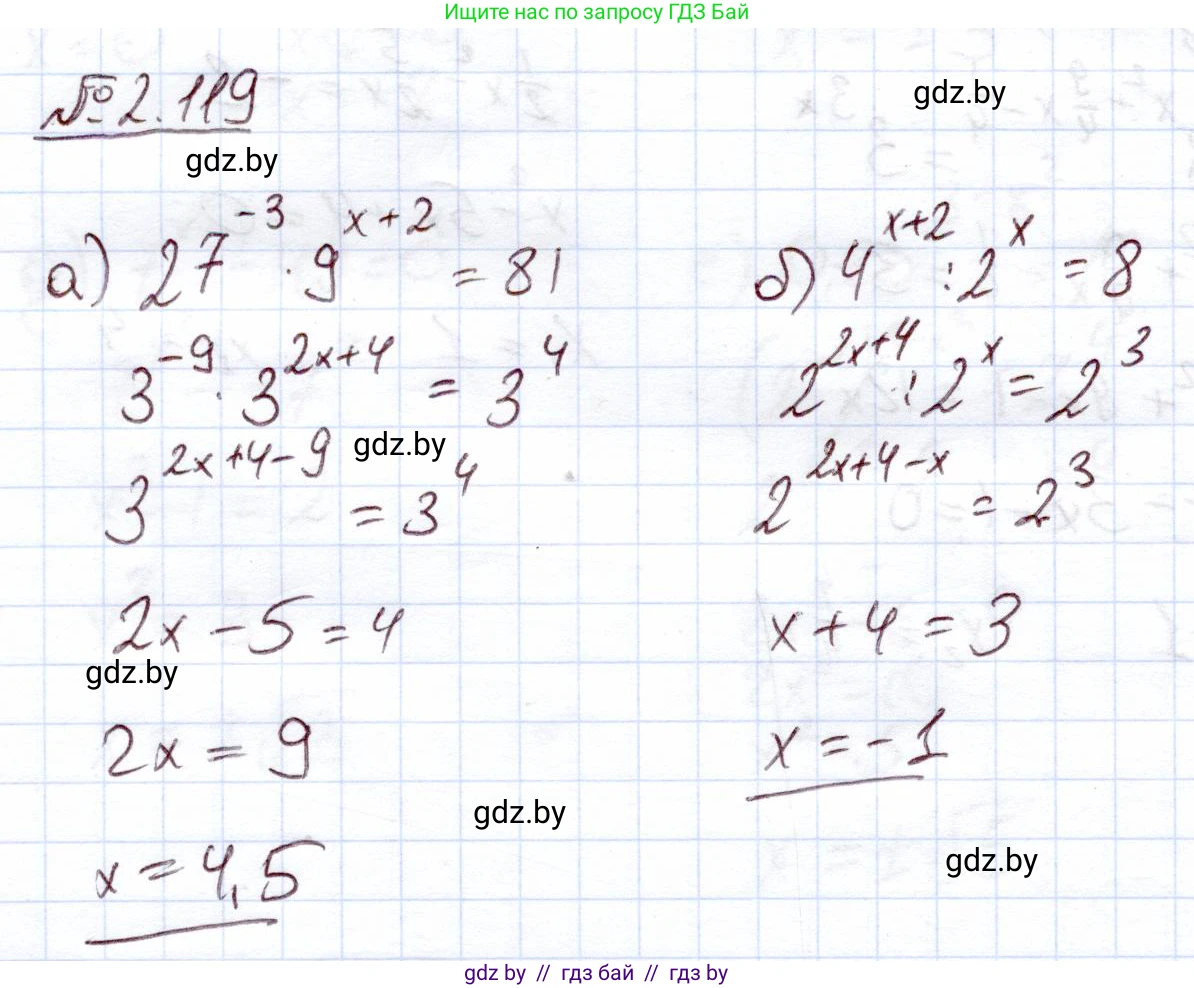 Ищите нас по запросу ГДЗ Бай
№2.119
gdz.by
gdz.by
а) 27^{-3} · 9^{x+2} = 81
3^{-9} · 3^{2x+4} = 3^4
gdz.by
3^{2x+4-9} = 3^4
2x - 5 = 4
gdz.by
2x = 9
gdz.by
x = 4,5
б) 4^{x+2} : 2^x = 8
2^{2x+4} : 2^x = 2^3
2^{2x+4-x} = 2^3
x + 4 = 3
x = -1
gdz.by
gdz by // гдз бай // гдз by